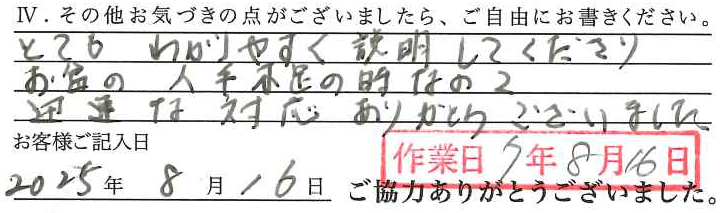 Ⅳ．その他お気づきの点がございましたら、ご自由にお書きください。
とても わかりやすく 説明 してくださり
お盆の 人手不足の時なのに
迅速な 対応 ありがとうございました
お客様ご記入日
作業日 7年8月16日
2025年 8月16日 ご協力ありがとうございました。